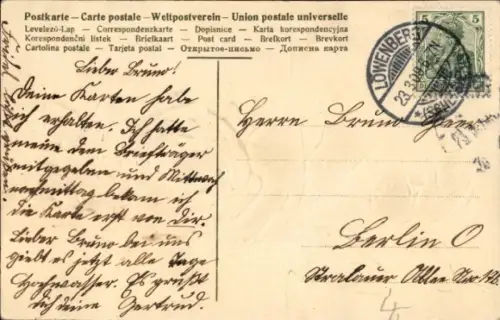 Postkarte – Carte postale – Weltpostverein – Union postale universelle
Levelező-Lap — Correspondenzkarte — Dopisnice — Karta korespondencyjna
Korespondenční lístek — Briefkaart — Post card — Brefkort — Brevkort
Cartolina postale — Tarjeta postal — Открытое-письмо — Дописна карта
5
5
LÖWENBERG
23.3.
Lieber Bruno!
Deine Karten habe
ich erhalten. Ich hatte
meine dem Briefträger
mitgegeben und Mittwoch
vormittag bekam ich
die Karte erst von Dir.
Lieber Bruno bei uns
giebt es jetzt alle Tage
Hochwasser. Es grüßt
dich deine Gertrud.
Herrn Bruno
Berlin O
Stralauer Allee Nr
4